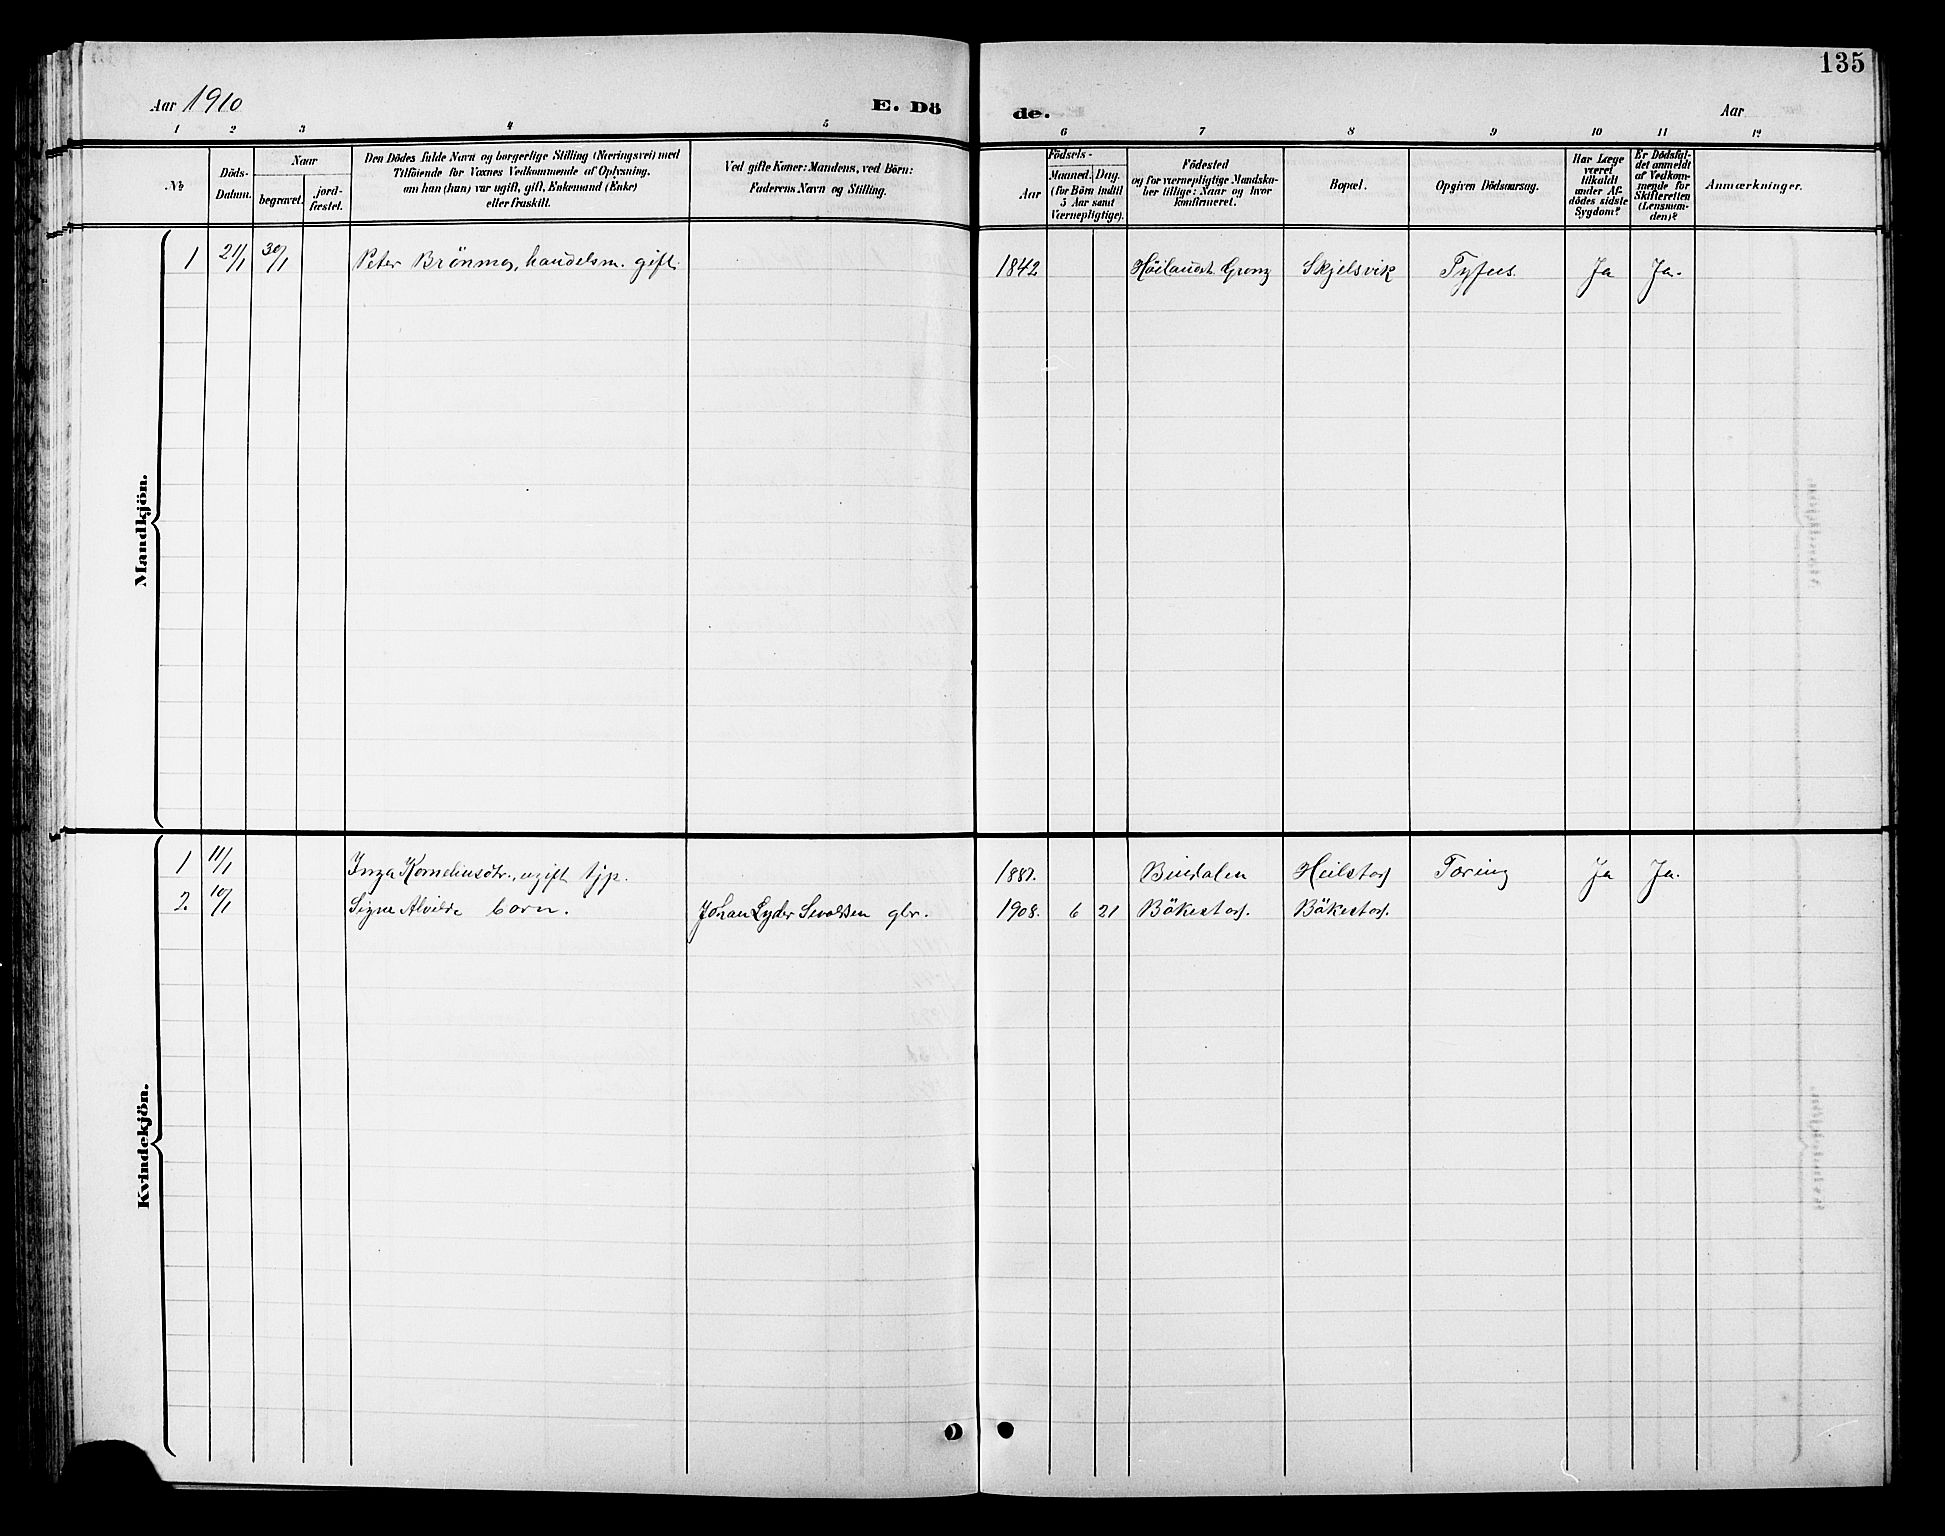 135
Aar 1910 E. Dö de. Aar
1 2 3 4 5 6 7 8 9 10 11 12
No
Döds-
Datum.
Naar
begravet.
jord-
fæstet.
Den Dödes fulde Navn og borgerlige Stilling (Næringsvei) med
Tilföiende for Voxnes Vedkommende af Oplysning,
om han (hun) var ugift, gift, Enkemand (Enke)
eller fraskilt.
Ved gifte Koner: Mandens, ved Börn:
Faderens Navn og Stilling.
Födsels-
Aar
Maaned. Dag.
(for Börn indtil
5 Aar samt
Værnepligtige).
Födested
og for værnepligtige Mandska-
ber tillige: Naar og hvor
konfirmeret.
Bopæl.
Opgiven Dödsaarsag.
Har Læge
været
tilkaldt
under Af-
dödes sidste
Sygdom?
Er Dödsfal-
det anmeldt
af Vedkom-
mende for
Skifteretten
(Lensman-
den)?
Anmærkninger.
Mandkjön.
1 21/1 30/1 Peter Brönmo, handelsm. gift. 1842 Höilandet. Grong Skjelsvik Tyfus. Ja Ja.
Kvindekjön.
1 11/1 Inga Korneliusdtr., ugift tjp. 1887. Bindalen Heilstad Tæring Ja Ja.
2. 10/1 Signe Alvilde barn. Johan Lyder Sevaldsen gbr. 1908. 6 21 Bökestad. Bökestad.